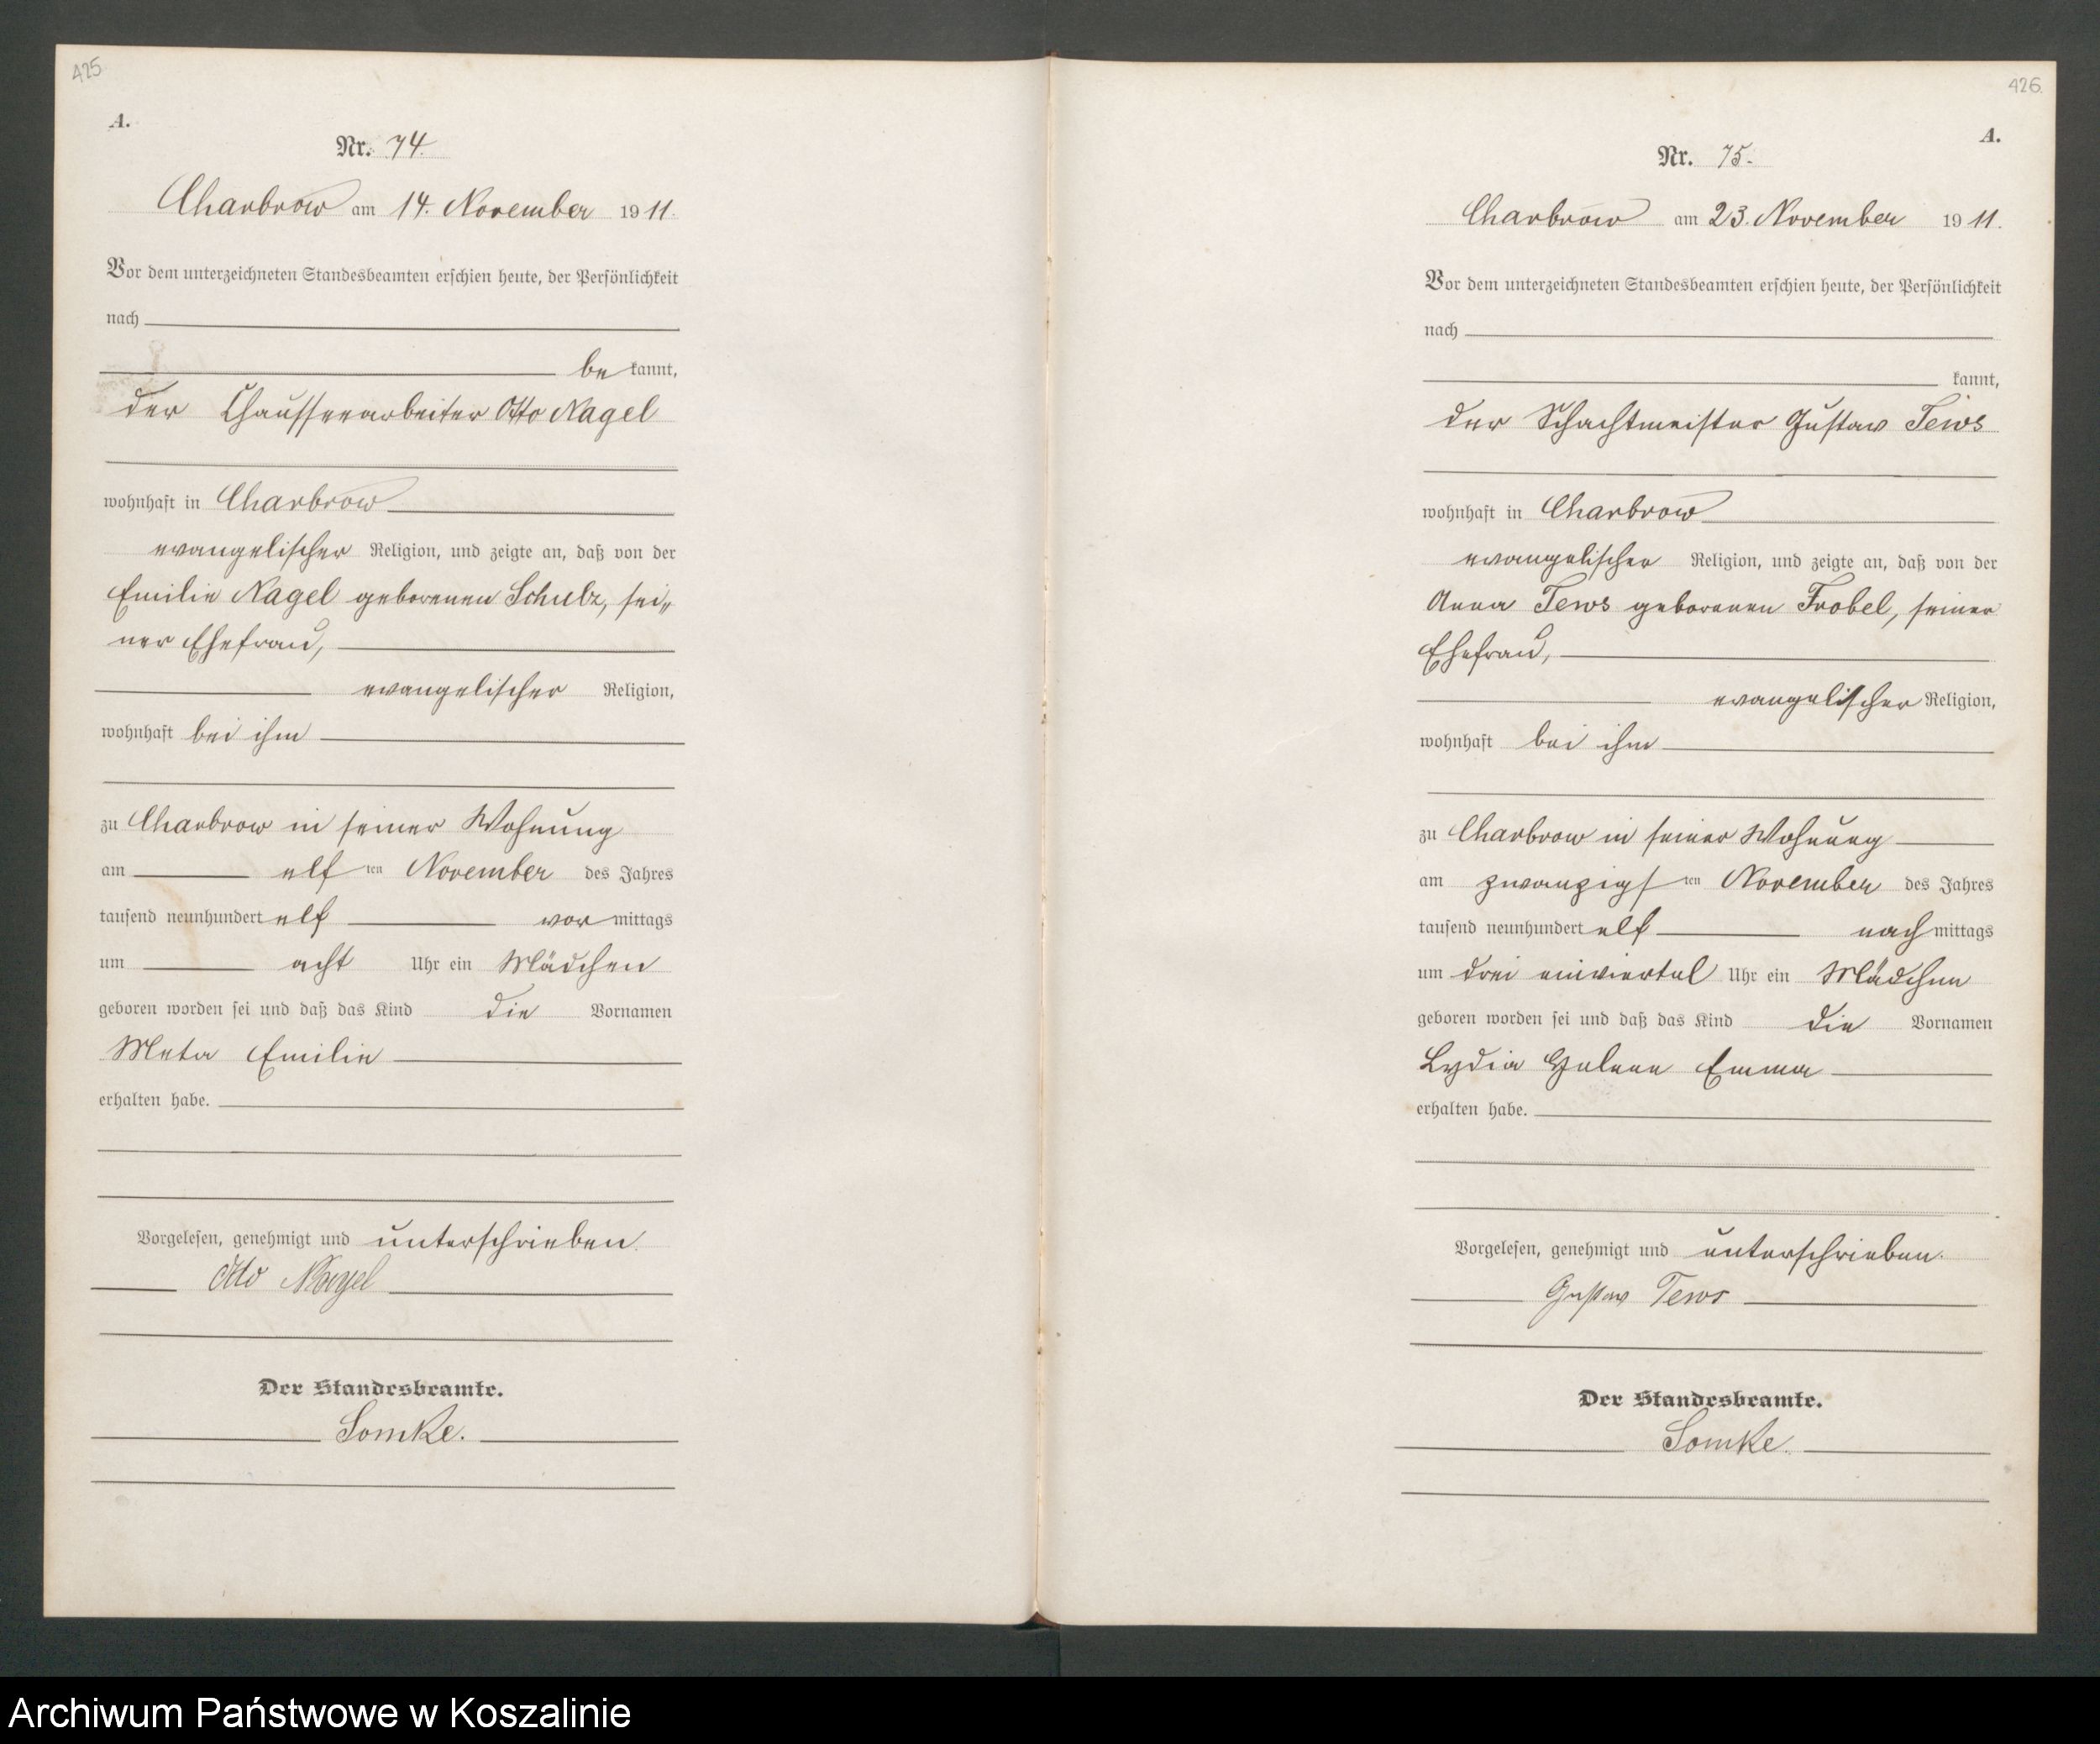 425
A.
Nr. 74.
Charbrow am 14. November 1911.
Vor dem unterzeichneten Standesbeamten erschien heute, der Persönlichkeit
nach
be kannt,
der Chausseearbeiter Otto Nagel
wohnhaft in Charbrow
evangelischer Religion, und zeigte an, daß von der
Emilie Nagel geborenen Schulz, sei„
ner Ehefrau,
evangelischer Religion,
wohnhaft bei ihm
zu Charbrow in seiner Wohnung
am elf ten November des Jahres
tausend neunhundert elf vor mittags
um acht Uhr ein Mädchen
geboren worden sei und daß das Kind die Vornamen
Meta Emilie
erhalten habe.
Vorgelesen, genehmigt und unterschrieben.
Otto Nagel
Der Standesbeamte.
Somke.
426.
A.
Nr. 75.
Charbrow am 23. November 1911.
Vor dem unterzeichneten Standesbeamten erschien heute, der Persönlichkeit
nach
kannt,
der Schachtmeister Gustav Tews
wohnhaft in Charbrow
evangelischer Religion, und zeigte an, daß von der
Anna Tews geborenen Frobel, seiner
Ehefrau,
evangelischer Religion,
wohnhaft bei ihm
zu Charbrow in seiner Wohnung
am zwanzigs ten November des Jahres
tausend neunhundert elf nach mittags
um drei einviertel Uhr ein Mädchen
geboren worden sei und daß das Kind die Vornamen
Lydia Emma
erhalten habe.
Vorgelesen, genehmigt und unterschrieben.
Gustav Tews
Der Standesbeamte.
Somke.
Archiwum Państwowe w Koszalinie